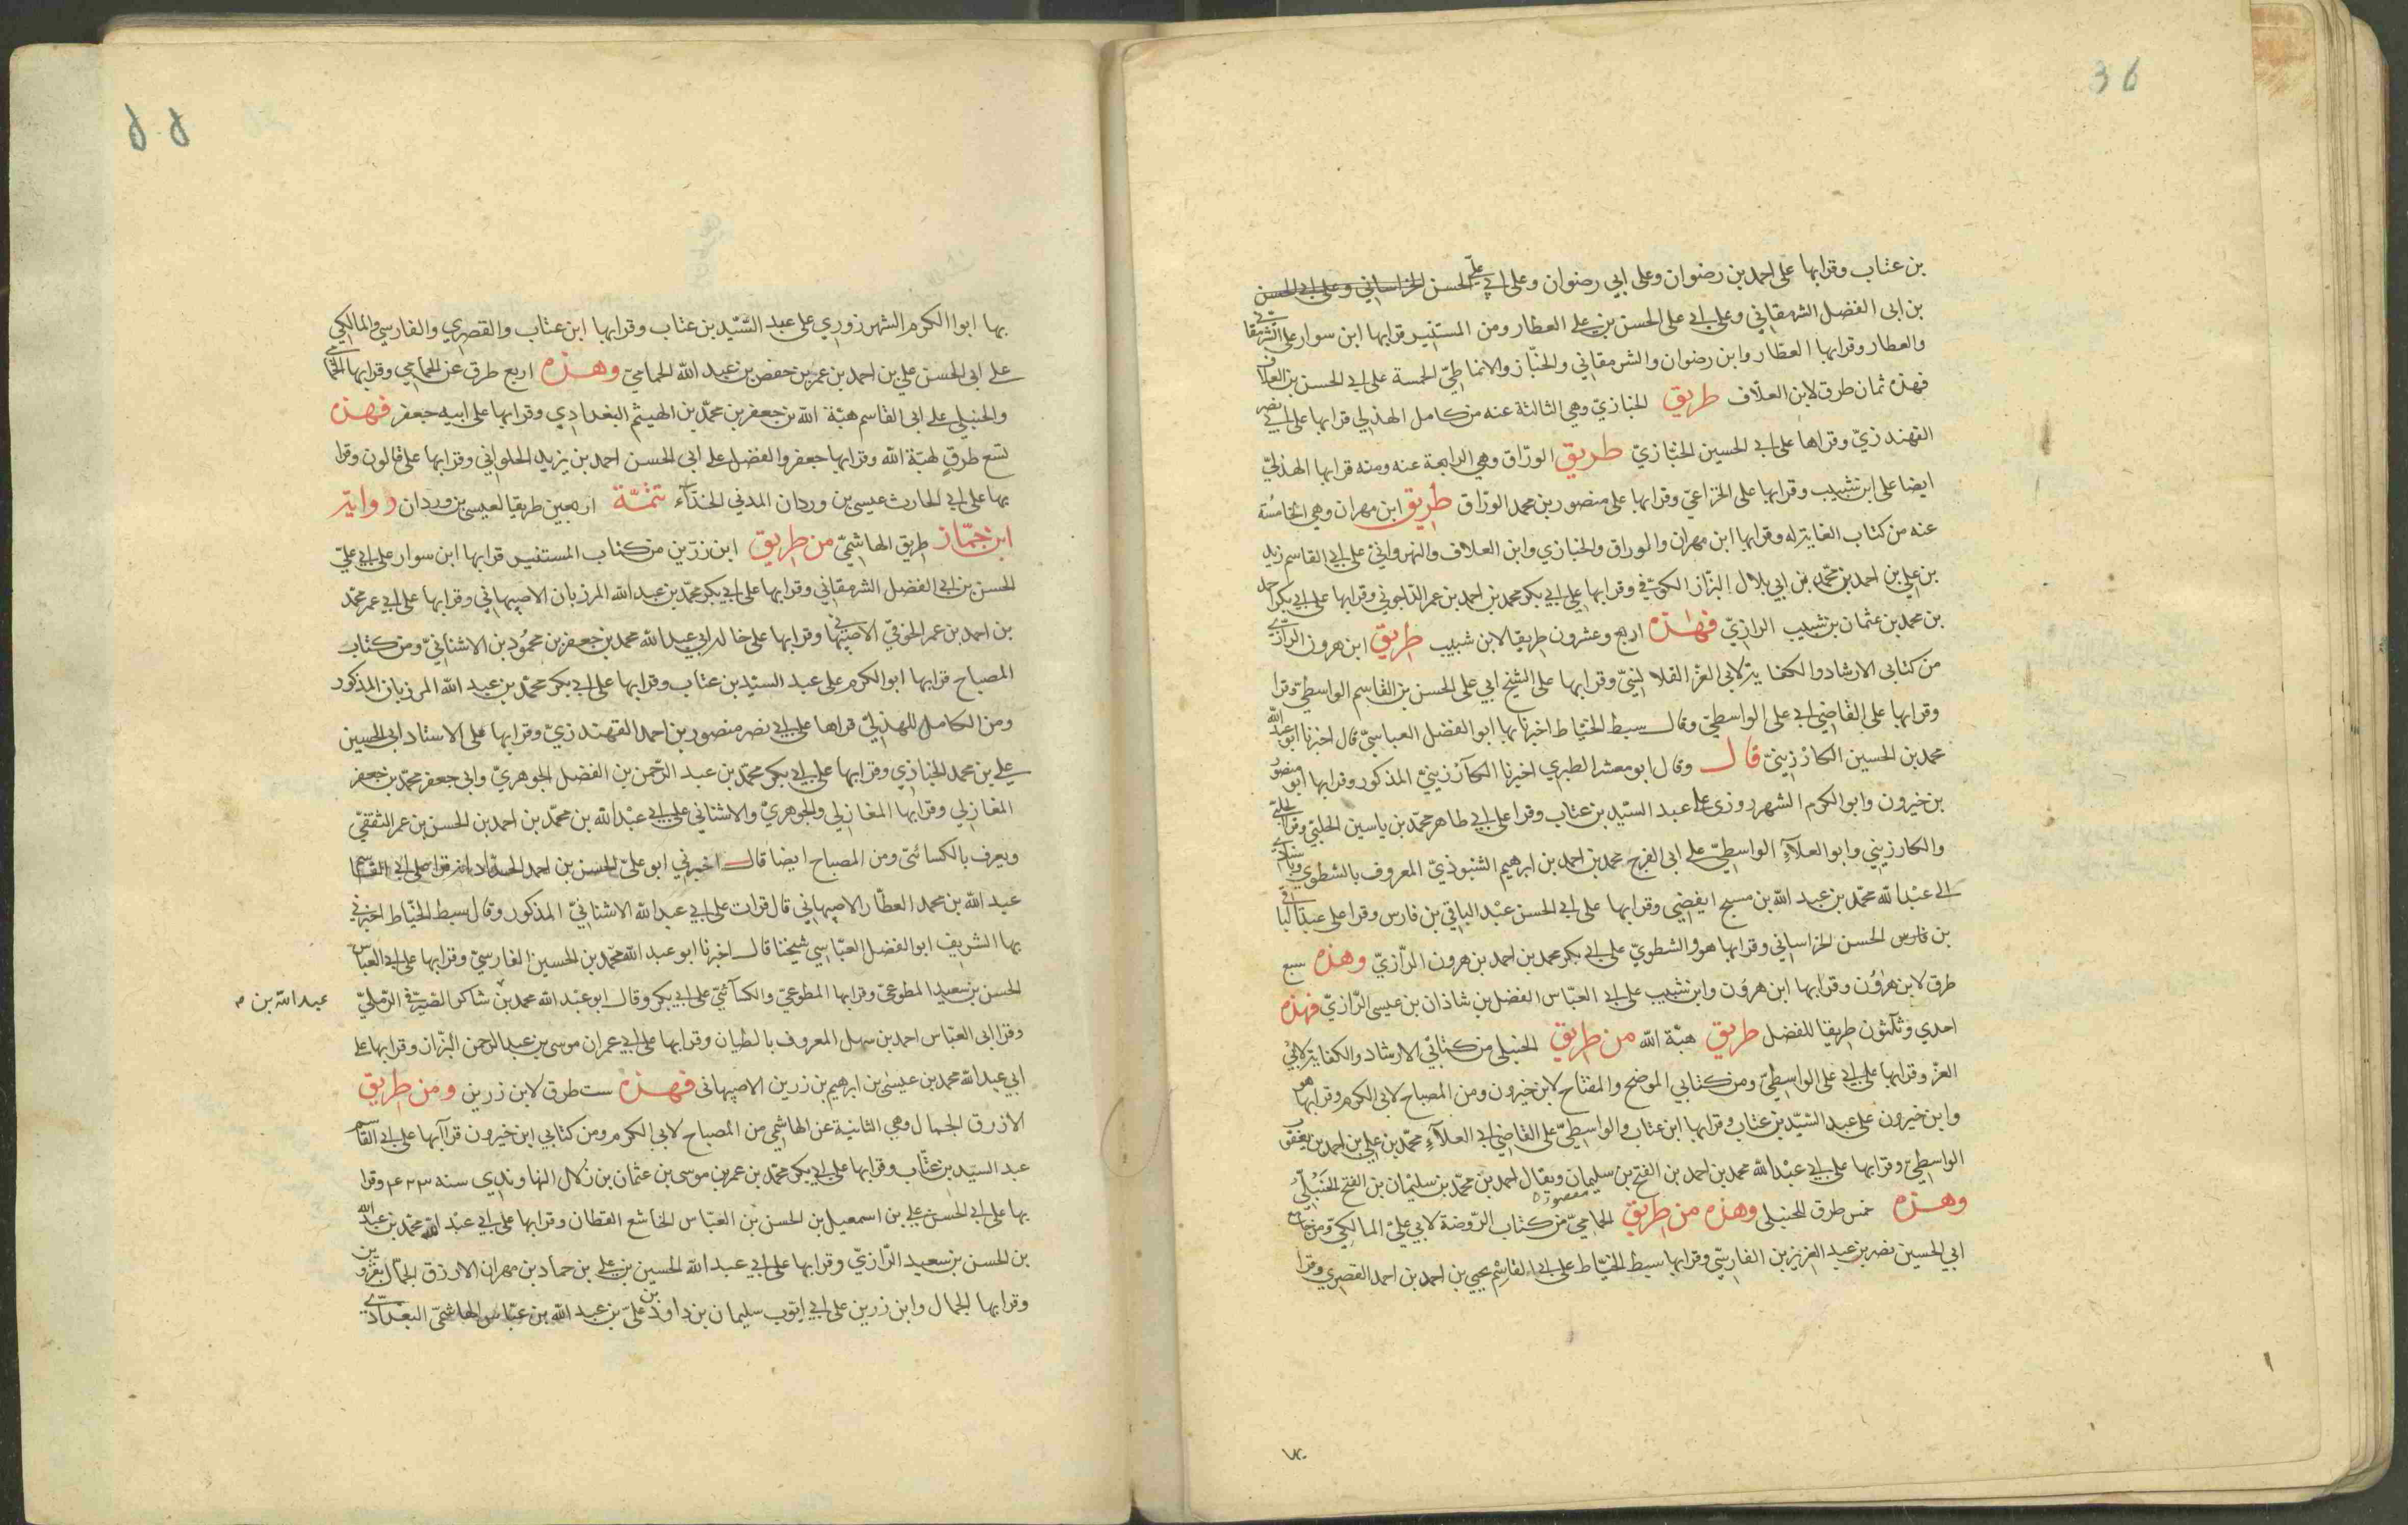 36
بن عتاب وقرا بها على احمد بن رضوان وعلى ابي رضوان وعلى ابي علي الحسن الخراساني وعلى ابي الحسن
بن ابى الفضل الشرمقاني وعلى ابي على الحسن بن علي العطار ومن المستنير قرا بها ابن سوار على الشرمقاني
والعطار وقرا بها العطّار وابن رضوان والشرمقاني والخبّاز والانماطيّ الخمسة على ابي الحسن بن العلاف
فهذه ثمان طرق لابن العلاّف طريق الخبازيّ وهي الثالثة عنه من كامل الهذلي قرا بها على ابي نصر
القهندزيّ وقراها على ابي الحسين الخبّازيّ طريق الورّاق وهي الرابعة عنه ومنه قرا بها الهذليّ
ايضا على ابن شبيب وقرا بها على الخزاعيّ وقرا بها على منصور بن محمد الورّاق طريق ابن مهران وهي الخامسة
عنه من كتاب الغاية له وقرا بها ابن مهران والوراق والخبازي وابن العلاف والنهرواني على ابي القاسم زيد
بن علي بن احمد بن محمّد بن ابي بلال البزّاز الكوفي وقرا بها على ابي بكر محمد بن احمد بن عمر الداجوني وقرا بها على ابي بكر احمد
بن محمد بن عثمان بن شبيب الرازيّ فهذه اربع وعشرون طريقا لابن شبيب طريق ابن هرون الرّازي
من كتابى الارشاد والكفاية لابى العز القلانسيّ وقرا بها على الشيخ ابي على الحسن بن القاسم الواسطيّ وقرا
وقرا بها على القاضي ابي على الواسطيّ وقال سبط الخيّاط اخبرنا بها ابو الفضل العباسيّ قال اخبرنا ابو عبد الله
محمد بن الحسين الكارزينيّ قال وقال ابو معشر الطبري اخبرنا الكارزينيّ المذكور وقرا بها ابو منصور
بن خيرون وابو الكرم الشهرزوزى على عبد السيّد بن عتاب وقرا على ابي طاهر محمّد بن ياسين الحلبيّ وقرا الحلبيّ
والكارزيني وابو العلاء الواسطيّ على ابى الفرج محمد بن احمد بن ابرهيم الشنبوذيّ المعروف بالشطوي
الى عبد الله محمّد بن عبد الله بن مسبح الفضي وقرا بها على ابي الحسن عبد الباقي بن فارس وقرا على عبد الباقي
بن فارس الحسن الخراساني وقرا بها هو والشطويّ على ابي بكر محمد بن احمد بن هرون الرّازيّ وهذه سبع
طرق لابن هرون وقرا بها ابن هرون وابن شبيب على ابي العبّاس الفضل بن شاذان بن عيسى الرّازيّ فهذه
احدي وثلثون طريقا للفضل طريق هبة الله من طريق الحنبلى من كتابي الارشاد والكفاية لابي
العزّ وقرا بها على ابي على الواسطيّ ومن كتابي الموضح والمفتاح لابن خيرون ومن المصباح لابى الكرم وقرا بها هو
وابن خيرون على عبد السّيّد بن عتاب وقرا بها ابن عتاب والواسطيّ على القاضي ابي العلاء محمّد بن علي بن احمد بن يعقوب
الواسطيّ وقرا بها على ابي عبد الله محمد بن احمد بن الفتح بن سليمان ويقال احمد بن محمّد بن سليمان بن الفتح الحنبليّ
وهذه خمس طرق للحنبلى وهذه من طريق الحماميّ من كتاب الرّوضة لابي عليّ المالكيّ ومن جامع
ابي الحسين نصر بن عبد العزيز بن الفارسّي وقرا بها سبط الخيّاط على ابي القاسم يحيي بن احمد بن احمد القصري وقرا
بها ابو الكرم الشهرزوري على عبد السّيّد بن عتاب وقرا بها ابن عتاب والقصري والفارسي والمالكي
على ابى الحسن علي بن احمد بن عمر بن حفص بن عبد الله الحماميّ وهذه اربع طرق عن الحمامي وقرا بها الحمامي
والحنبلي على ابى القاسم هبة الله بن جعفر بن محمّد بن الهيثم البغدادي وقرا بها على ابيه جعفر فهذه
تسع طرق لهبة الله وقرا بها جعفر والفضل على ابى الحسن احمد بن يزيد الحلواني وقرا بها على قالون وقرا
بها على ابي الحارث عيسى بن وردان المدني الحذاء تتمّة اربعين طريقا لعيسى بن وردان رواية
ابن جمّاز طريق الهاشميّ من طريق ابن رزين من كتاب المستنير قرا بها ابن سوار على ابي عليّ
الحسن بن ابي الفضل الشرمقاني وقرا بها على ابي بكر محمّد بن عبد الله المرزبان الاصبهاني وقرا بها على ابي عمر محمّد
بن احمد بن عمر الخوقيّ الاصبهاني وقرا بها على خاله ابي عبد الله محمد بن جعفر بن محمود بن الاشنانيّ ومن كتاب
المصباح قرا بها ابو الكرم على عبد السيّد بن عتاب وقرا بها على ابي بكر محمّد بن عبد الله المرزبان المذكور
ومن الكامل للهذليّ قراها على ابي نصر منصور بن احمد القهندزيّ وقرا بها على الاستاد ابى الحسين
علي بن محمد الخبازي وقرا بها على ابي بكر محمّد بن عبد الرّحمن بن الفضل الجوهريّ وابى جعفر محمّد بن جعفر
المغازلي وقرا بها المغازلي والجوهريّ والاشناني على ابي عبد الله بن محمّد بن احمد بن الحسن بن عمر الثقفيّ
ويعرف بالكسائيّ ومن المصباح ايضا قال اخبرني ابو عليّ الحسن بن احمد الحدّاد انه قرا على ابي القاسم
عبد الله بن محمد العطّار الاصبهاني قال قرات على ابي عبد الله الاشنانيّ المذكور وقال سبط الخيّاط اخبرني
بها الشريف ابو الفضل العبّاسي شيخنا قال اخبرنا ابو عبد الله محمّد بن الحسين الفارسيّ وقرا بها على ابي العباس
الحسن بن سعيد المطوعيّ وقرا بها المطوعيّ والكسآئيّ على ابي بكر وقال ابو عبد الله محمد بن شاكر الصّيرفي الرّمليّ
عبد الله بن م
وقرا ابى العبّاس احمد بن سهل المعروف بالطيان وقرا بها على ابي عمران موسى بن عبد الرحمن البزّاز وقرا بها على
ابي عبد الله محمد بن عيسى بن ابرهيم بن زرين الاصبهانى فهذه ست طرق لابن زرين ومن طريق
الازرق الجمال وهي الثانية عن الهاشمي من المصباح لابى الكرم ومن كتابي ابن خيرون قرآ بها على ابي القاسم
عبد السيّد بن عتّاب وقرا بها على ابي بكر محمّد بن عمر بن موسى بن عثمان بن زلال النهاوندي سنه ٤٢٣ وقرا
بها على ابي الحسن علي بن اسمعيل بن الحسن بن العبّاس الخاشع القطان وقرا بها على ابي عبد الله محمّد بن عبد الله
بن الحسن بن سعيد الرّازيّ وقرا بها على ابي عبد الله الحسين بن علي بن حماد بن مهران الازرق الجمّال بقزوين
وقرا بها الجمال وابن زرين على ابي ايّوب سليمان بن داود بن عليّ بن عبد الله بن عبّاس الهاشميّ البغدادي